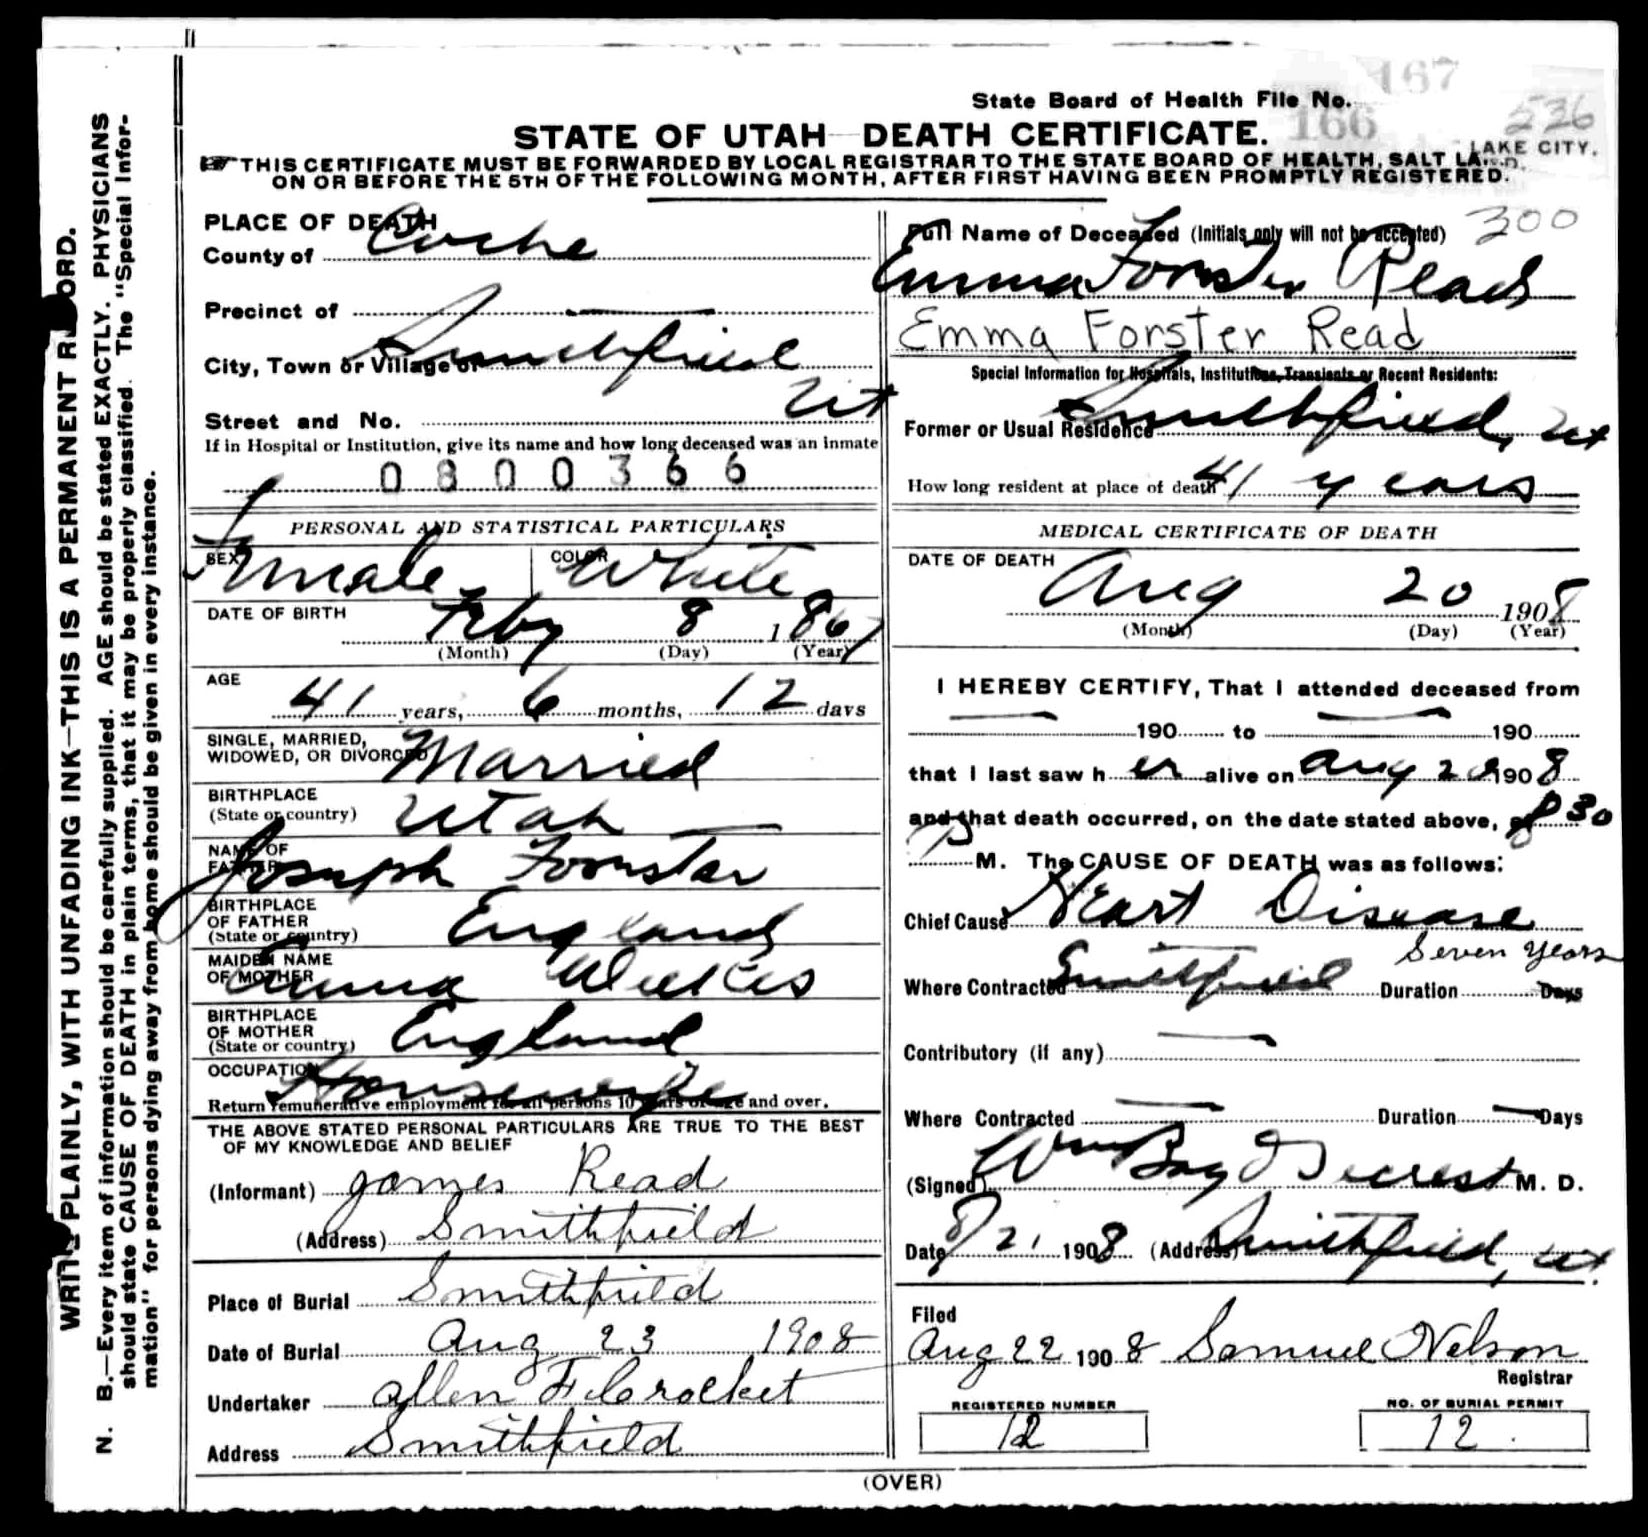 State Board of Health File No. 166
167
536
STATE OF UTAH—DEATH CERTIFICATE.
THIS CERTIFICATE MUST BE FORWARDED BY LOCAL REGISTRAR TO THE STATE BOARD OF HEALTH, SALT LAKE CITY,
ON OR BEFORE THE 5TH OF THE FOLLOWING MONTH, AFTER FIRST HAVING BEEN PROMPTLY REGISTERED.
WRITE PLAINLY, WITH UNFADING INK—THIS IS A PERMANENT RECORD.
N. B.—Every item of information should be carefully supplied. AGE should be stated EXACTLY. PHYSICIANS
should state CAUSE OF DEATH in plain terms, that it may be properly classified. The "Special Infor-
mation" for persons dying away from home should be given in every instance.
PLACE OF DEATH
County of Cache
Precinct of
City, Town or Village of Smithfield
Street and No. Ut
If in Hospital or Institution, give its name and how long deceased was an inmate
0800366
PERSONAL AND STATISTICAL PARTICULARS
SEX Female COLOR White
DATE OF BIRTH Feby 8 1867
(Month) (Day) (Year)
AGE
41 years, 6 months, 12 days
SINGLE, MARRIED,
WIDOWED, OR DIVORCED Married
BIRTHPLACE
(State or country) Utah
NAME OF
FATHER Joseph Forster
BIRTHPLACE
OF FATHER
(State or country) England
MAIDEN NAME
OF MOTHER
BIRTHPLACE
OF MOTHER
(State or country) England
OCCUPATION Housewife
Return remunerative employment for all persons 10 years of age and over.
THE ABOVE STATED PERSONAL PARTICULARS ARE TRUE TO THE BEST
OF MY KNOWLEDGE AND BELIEF
(Informant) James Read
(Address) Smithfield
Place of Burial Smithfield
Date of Burial Aug 23 1908
Undertaker Allen F Crocket
Address Smithfield
Full Name of Deceased (Initials only will not be accepted) 300
Emma Forster Read
Emma Forster Read
Special Information for Hospitals, Institutions, Transients or Recent Residents:
Former or Usual Residence Smithfield, Ut
How long resident at place of death 41 years
MEDICAL CERTIFICATE OF DEATH
DATE OF DEATH
Aug 20 1908
(Month) (Day) (Year)
I HEREBY CERTIFY, That I attended deceased from
190 to 190
that I last saw her alive on Aug 20 1908
and that death occurred, on the date stated above, at 8 30
P M. The CAUSE OF DEATH was as follows:
Chief Cause Heart Disease
Seven Years
Where Contracted Smithfield Duration Days
Contributory (if any)
Where Contracted Duration Days
(Signed) M. D.
Date 8/21 1908 (Address) Smithfield, Ut.
Filed
Aug 22 1908 Samuel Nelson
Registrar
REGISTERED NUMBER
12
NO. OF BURIAL PERMIT
12
(OVER)